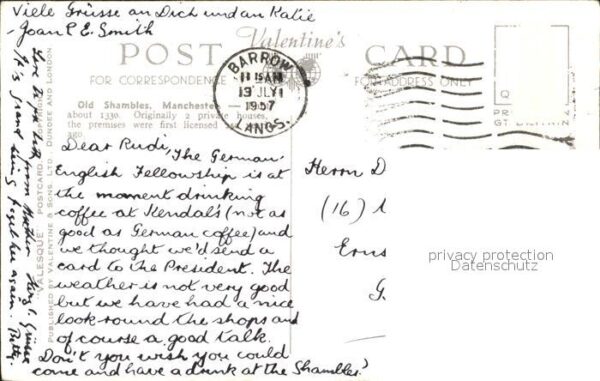 Viele Grüsse an Dich und an Katie
- Joan P. E. Smith
Valentine's
POST CARD
FOR CORRESPONDENCE
FOR ADDRESS ONLY
BARROW
11 15 AM
19 JLY
1957
LANCS.
Old Shambles, Manchester
about 1330. Originally 2 private houses,
the premises were first licensed
ago.
Dear Rudi, The German/
English Fellowship is at
the moment drinking
coffee at Kendal's (not as
good as German coffee) and
we thought we'd send a
card to the President. The
weather is not very good
but we have had a nice
look round the shops and
of course a good talk.
Don't you wish you could
come and have a drink at the Shambles?
Herrn D
(16)
Erns
G.
privacy protection
Datenschutz
"VALESQUE" POSTCARD.
PUBLISHED BY VALENTINE & SONS, LTD. DUNDEE AND LONDON.
Love to you all from Mother
It's grand being together again. Betty